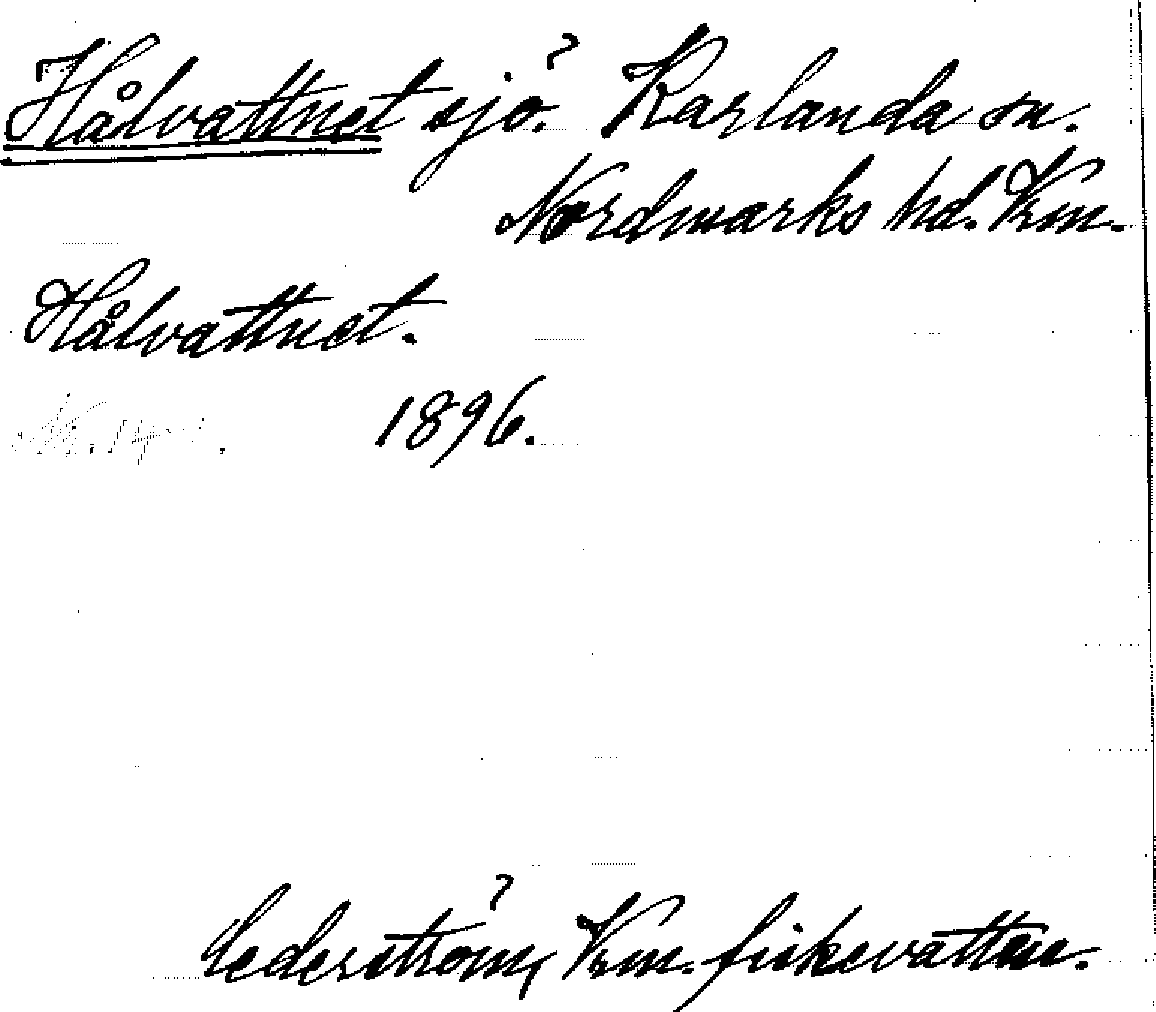 Hålvattnet sjö. Karlanda sn.
Nordmarks hd. Vrm.
Hålvattnet.
1896.
Cederström, Vrm. fiskevatten.